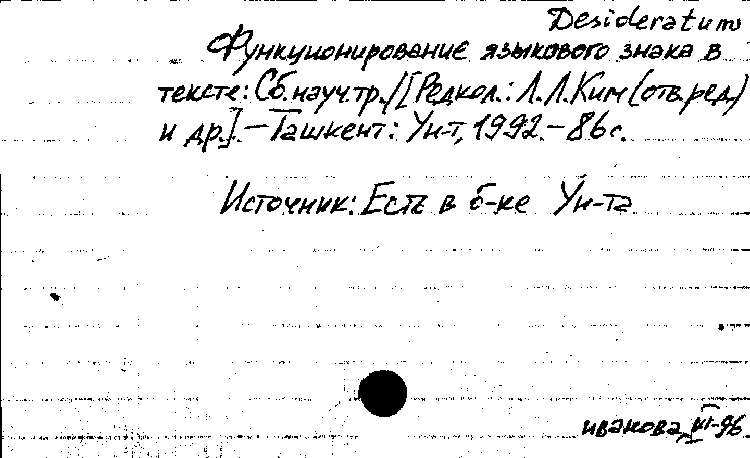 Desideratum
Функционирование языкового знака в
тексте: Сб. науч. тр. / [Редкол.: Л. Л. Ким (отв. ред.)
и др.]. - Ташкент: Ун-т, 1992. - 86 с.
Источник: Есть в б-ке Ун-та
иванова, VII-96